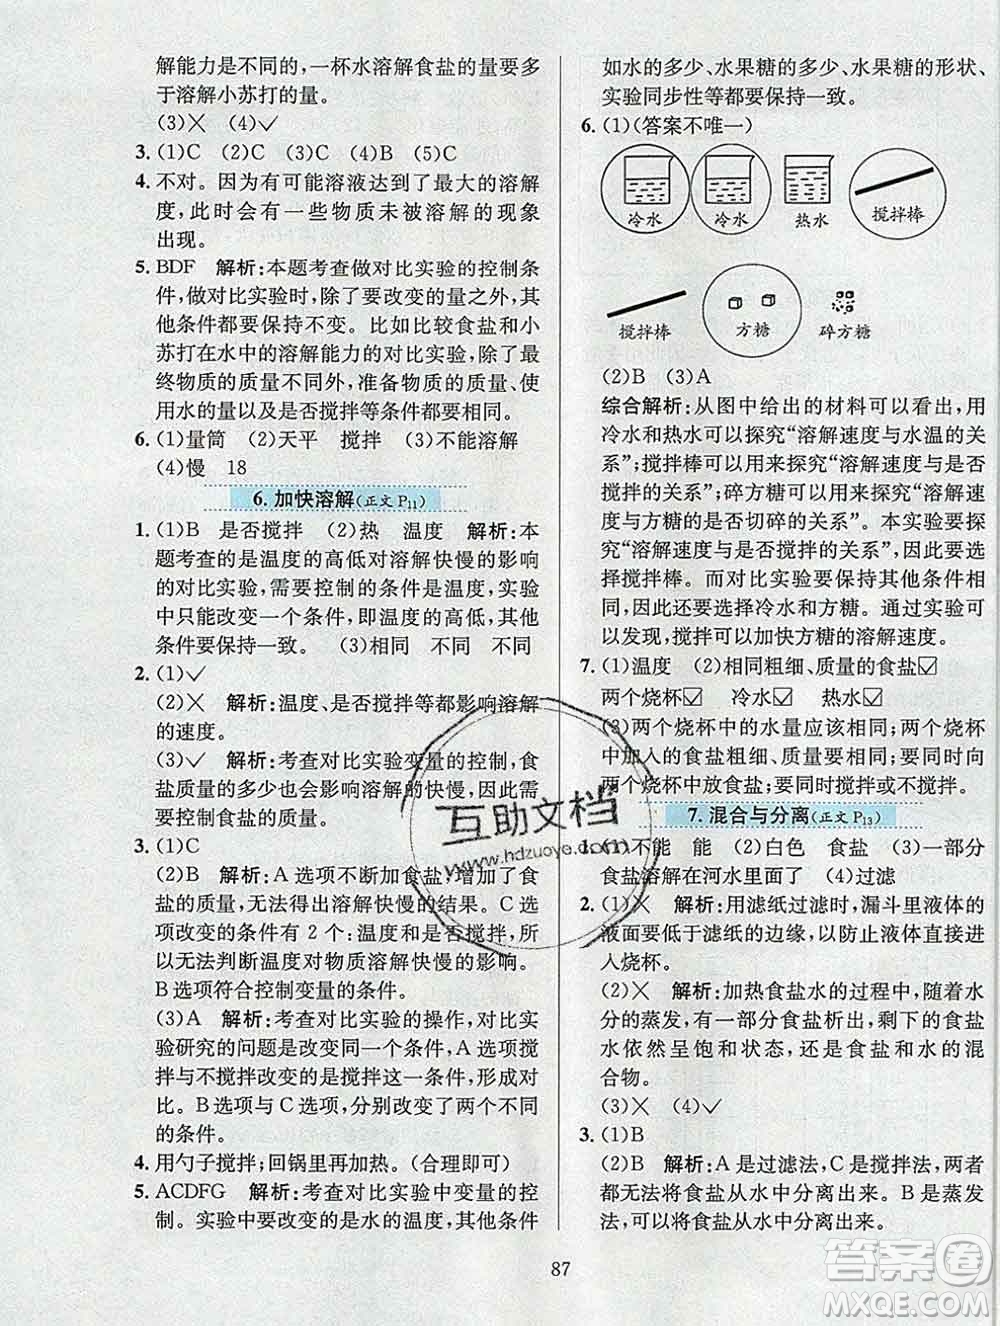 解能力是不同的,一杯水溶解食盐的量要多
于溶解小苏打的量。
(3)✕ (4)✓
3. (1)C (2)C (3)C (4)B (5)C
4. 不对。因为有可能溶液达到了最大的溶解
度,此时会有一些物质未被溶解的现象
出现。
5. BDF 解析:本题考查做对比实验的控制条
件,做对比实验时,除了要改变的量之外,其
他条件都要保持不变。比如比较食盐和小
苏打在水中的溶解能力的对比实验,除了最
终物质的质量不同外,准备物质的质量、使
用水的量以及是否搅拌等条件要相同。
6. (1)量筒 (2)天平 搅拌 (3)不能溶解
(4)慢 18
6. 加快溶解(正文 P11)
1. (1)B 是否搅拌 (2)热 温度 解析:本
题考查的是温度的高低对溶解快慢的影响
的对比实验,需要控制的条件是温度,实验
中只能改变一个条件,即温度的高低,其他
条件要保持一致。 (3)相同 不同 不同
2. (1)✓
(2)✕ 解析:温度、是否搅拌等都影响溶解
的速度。
(3)✓ 解析:考查对比实验变量的控制,食
盐质量的多少也会影响溶解的快慢,因此需
要控制食盐的质量。
3. (1)C
(2)B 解析:A选项不断加食盐,增加了食
盐的质量,无法得出溶解快慢的结果。C选
项改变的条件有2个:温度和是否搅拌,所
以无法判断温度对物质溶解快慢的影响。
B选项符合控制变量的条件。
(3)A 解析:考查对比实验的操作,对比实
验研究的问题是改变同一条件,A选项搅
拌与不搅拌改变的是搅拌这一条件,构成对
比。B选项与C选项,分别改变了两个不同
的条件。
4. 用勺子搅拌;回锅里再加热。(合理即可)
5. ACDFG 解析:考查对比实验中变量的控
制。实验中要改变的是水的温度,其他条件
如水的多少、水果糖的多少、水果糖的形状、
实验同步性等都要保持一致。
6. (1)(答案不唯一)
冷水 冷水 热水 搅拌棒
搅拌棒 方糖 碎方糖
(2)B (3)A
综合解析:从图中给出的材料可以看出,用
冷水和热水可以探究“溶解速度与水温的关
系”;搅拌棒可以用来探究“溶解速度与是否
搅拌的关系”;碎方糖可以用来探究“溶解速
度与方糖的是否切碎的关系”。本实验要探
究“溶解速度与是否搅拌的关系”,因此要选
择搅拌棒。而对比实验要保持其他条件相
同,因此还要选择冷水和方糖。通过实验可
以发现,搅拌可以加快方糖的溶解速度。
7. (1)温度 (2)相同粗细、质量的食盐☑
两个烧杯☑ 冷水☑ 热水☑
(3)两个烧杯中的水量应该相同;两个烧杯
中加入的食盐粗细、质量要相同;要同时向
两个烧杯中放食盐;要同时搅拌或不搅拌。
7. 混合与分离(正文 P13)
1. (1)不能 能 (2)白色 食盐 (3)一部分
食盐溶解在河水里面了 (4)过滤
2. (1)✕ 解析:用滤纸过滤时,漏斗里液体的
液面要低于滤纸的边缘,以防止液体直接进
入烧杯。
(2)✕ 解析:加热食盐水的过程中,随着水
分的蒸发,有一部分食盐析出,剩下的食盐
水依然呈饱和状态,还是食盐和水的混
合物。
(3)✕ (4)✓
3. (1)B
(2)B 解析:A是过滤法,C是搅拌法,两者
都无法将食盐从水中分离出来。B是蒸发
法,可以将食盐从水中分离出来。
87
互助文档
www.hdzuoye.com
答案圈
MXQE.COM